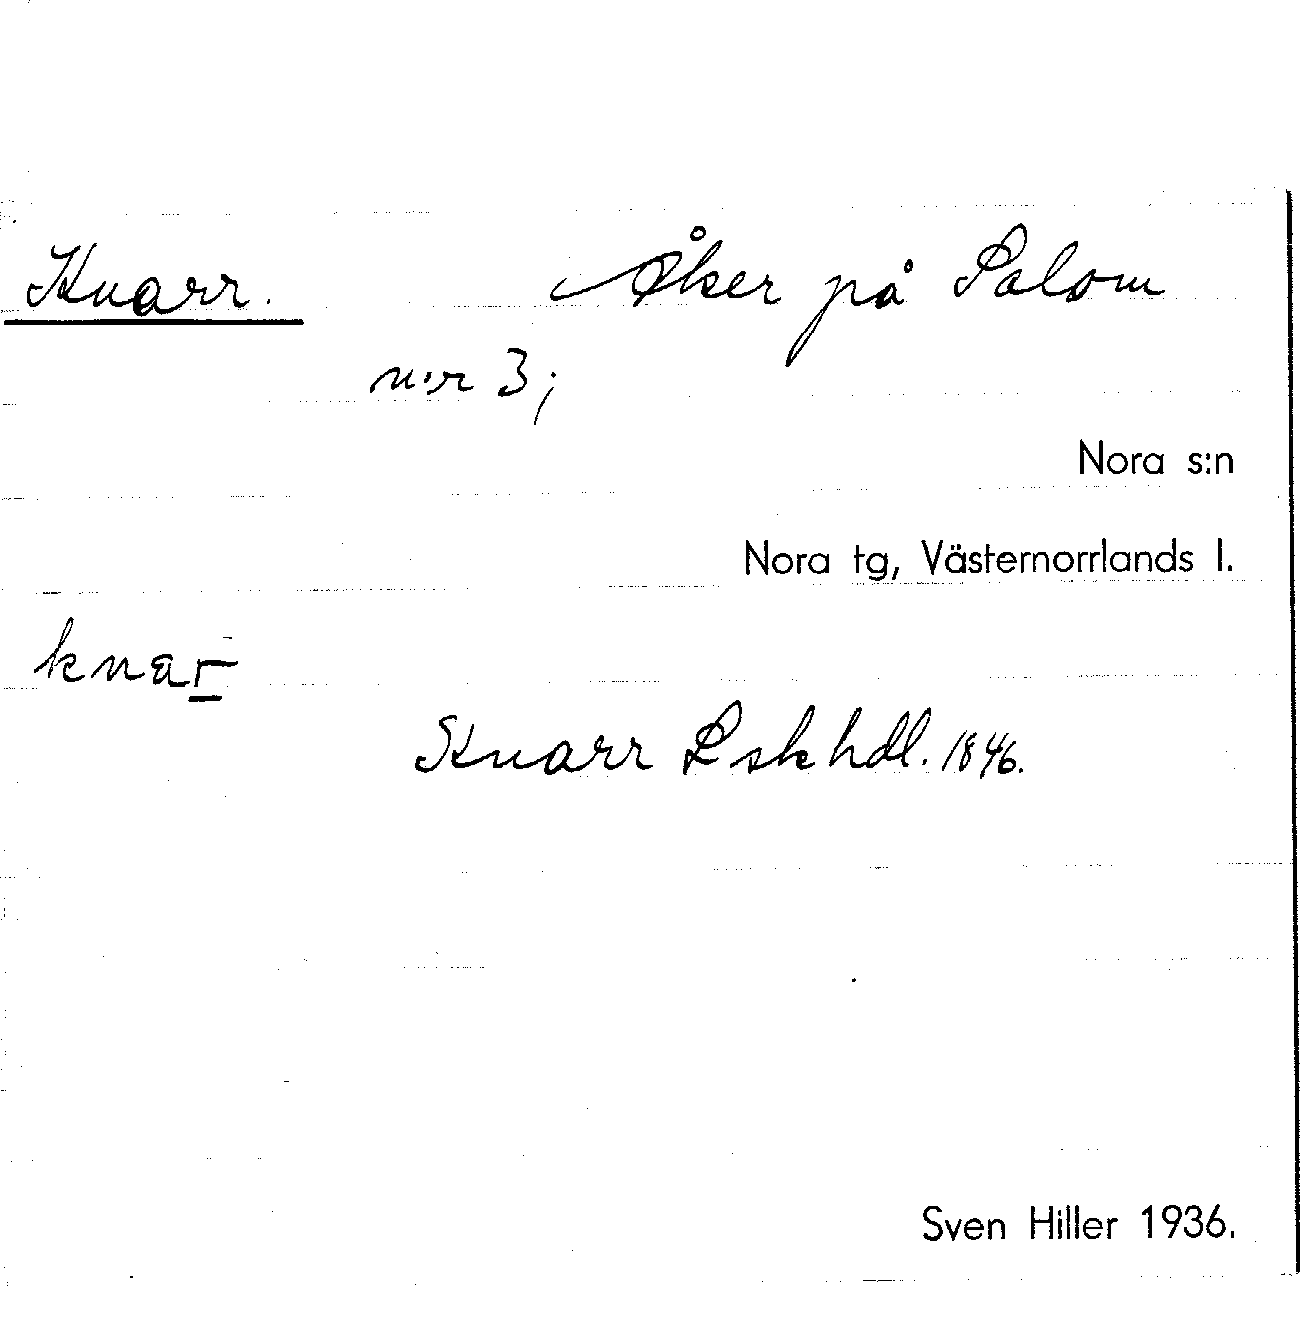 Knarr. Åker på Salom
n:r 3;
Nora s:n
Nora tg, Västernorrlands l.
knar
Knarr Lskhdl. 1846.
Sven Hiller 1936.